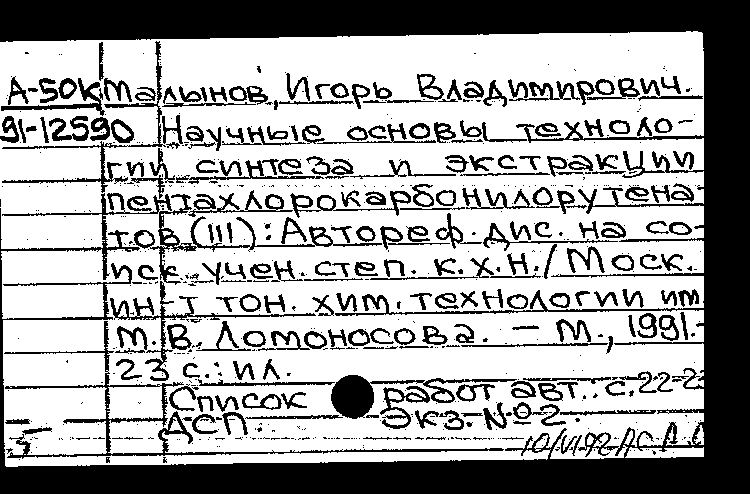 А-50к Малынов, Игорь Владимирович.
91-12590 Научные основы техноло-
гии синтеза и экстракции
пентахлорокарбонилорутена-
тов (III): Автореф. дис. на со-
иск. учен. степ. к.х.н./ Моск.
ин-т тон. хим. технологии им.
М.В. Ломоносова. - М., 1991.-
23 с.: ил.
Список работ авт.: с. 22-23
ДСП. Экз. №2.
10/VI-92